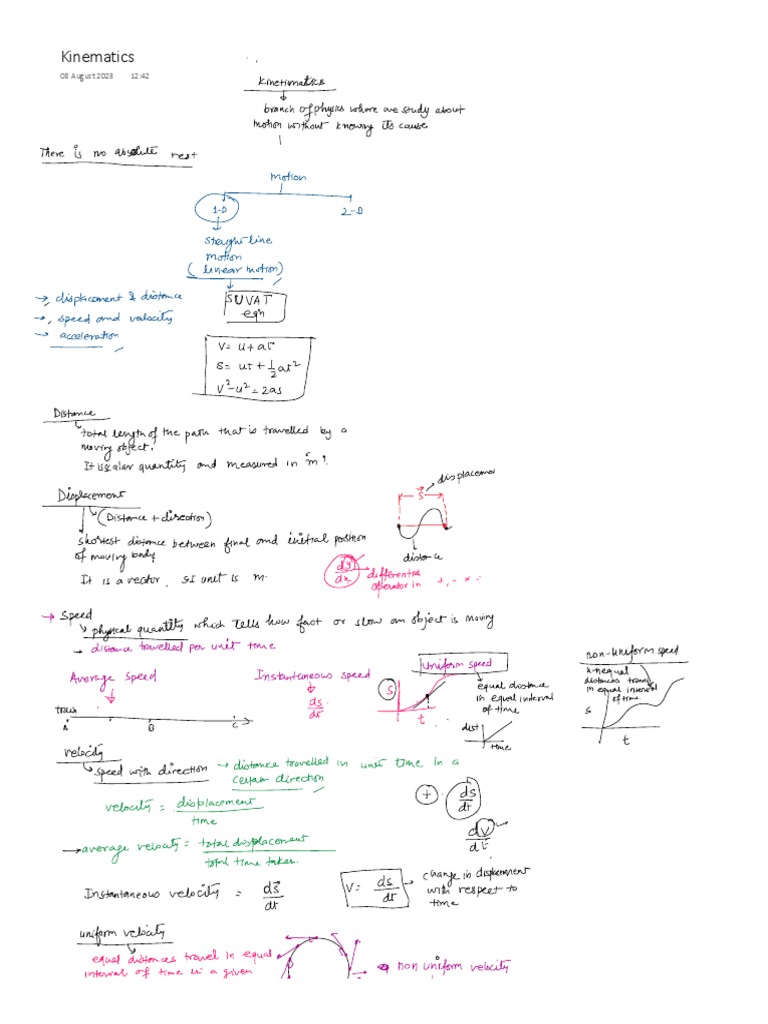 Kinematics
08 August 2023 12:42
Kinetimatics
branch of physics where we study about
motion without knowing its cause
There is no absolute rest
motion
1-D
2-D
straight-line
motion
(linear motion)
→ displacement & distance
→ speed and velocity
→ acceleration
SUVAT
eqn
V = u + at
S = ut + 1/2 at²
V² - u² = 2as
Distance
total length of the path that is travelled by a
moving object.
It is scalar quantity and measured in 'm'.
Displacement
(Distance + direction)
shortest distance between final and initial position
of moving body
It is a vector, SI unit is m.
displacemen
S
distance
dy/dx
→ differential
operator in +, - × ÷
→ Speed
physical quantity which tells how fast or slow an object is moving
→ distance travelled per unit time
Average speed
Instantaneous speed
ds/dt
train
A B C
Uniform speed
S
t
equal distance
in equal interval
of time
dist
time
non-uniform speed
distances trave
in equal interval
of time
s
t
velocity
speed with direction → distance travelled in unit time in a
certain direction
velocity = displacement/time
+
ds/dt
dv/dt
→ average velocity = total displacement/total time taken.
Instantaneous velocity = ds/dt
V = ds/dt
change in displacement
with respect to
time
uniform velocity
equal distances travel in equal
interval of time in a given
non uniform velocity